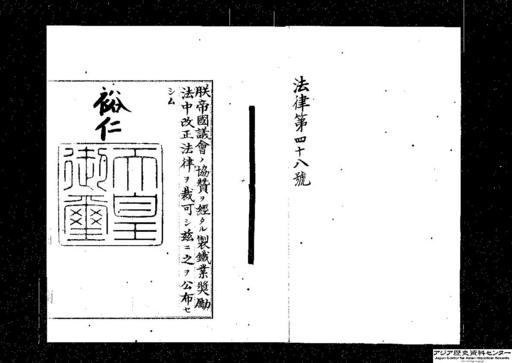 法律第四十八號
朕帝國議會ノ協贊ヲ經タル製鐵業奬勵
法中改正法律ヲ裁可シ茲ニ之ヲ公布セ
シム
裕仁
天皇
御璽
アジア歴史資料センター
Japan Center for Asian Historical Records